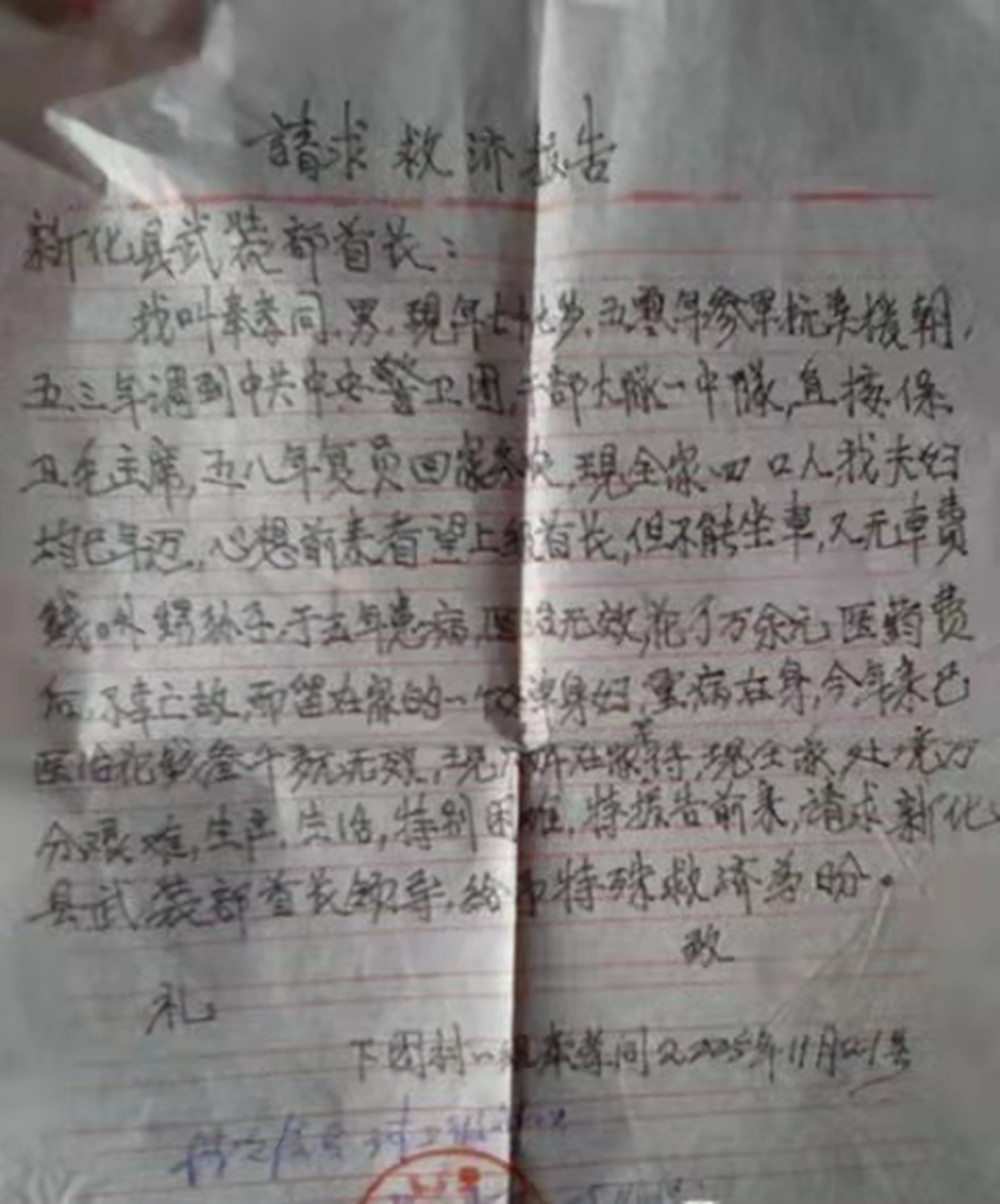 請求救济报告
新化县武装部首长:
我叫奉孝同,男,现年七十七岁,五零年参军抗美援朝,
五三年调到中共中央警卫团干部大队一中队,直接保
卫毛主席,五八年复员回家务农,现全家四口人,我夫妇
均已年迈,心想前来看望上级首长,但不能坐车,又无车费
钱。外甥孙子,于去年患病,医治无效,花了万余元医药费
后,不幸亡故,而留在家的一单身妇,重病在身,今年来已
医治花钱叁千多元无效,现在家待,现全家处境万
分艰难,生产,生活,特别困难,特报告前来,請求新化
县武装部首长领导,给予特殊救济为盼。
致
礼。
下团村组奉孝同2005年11月21号